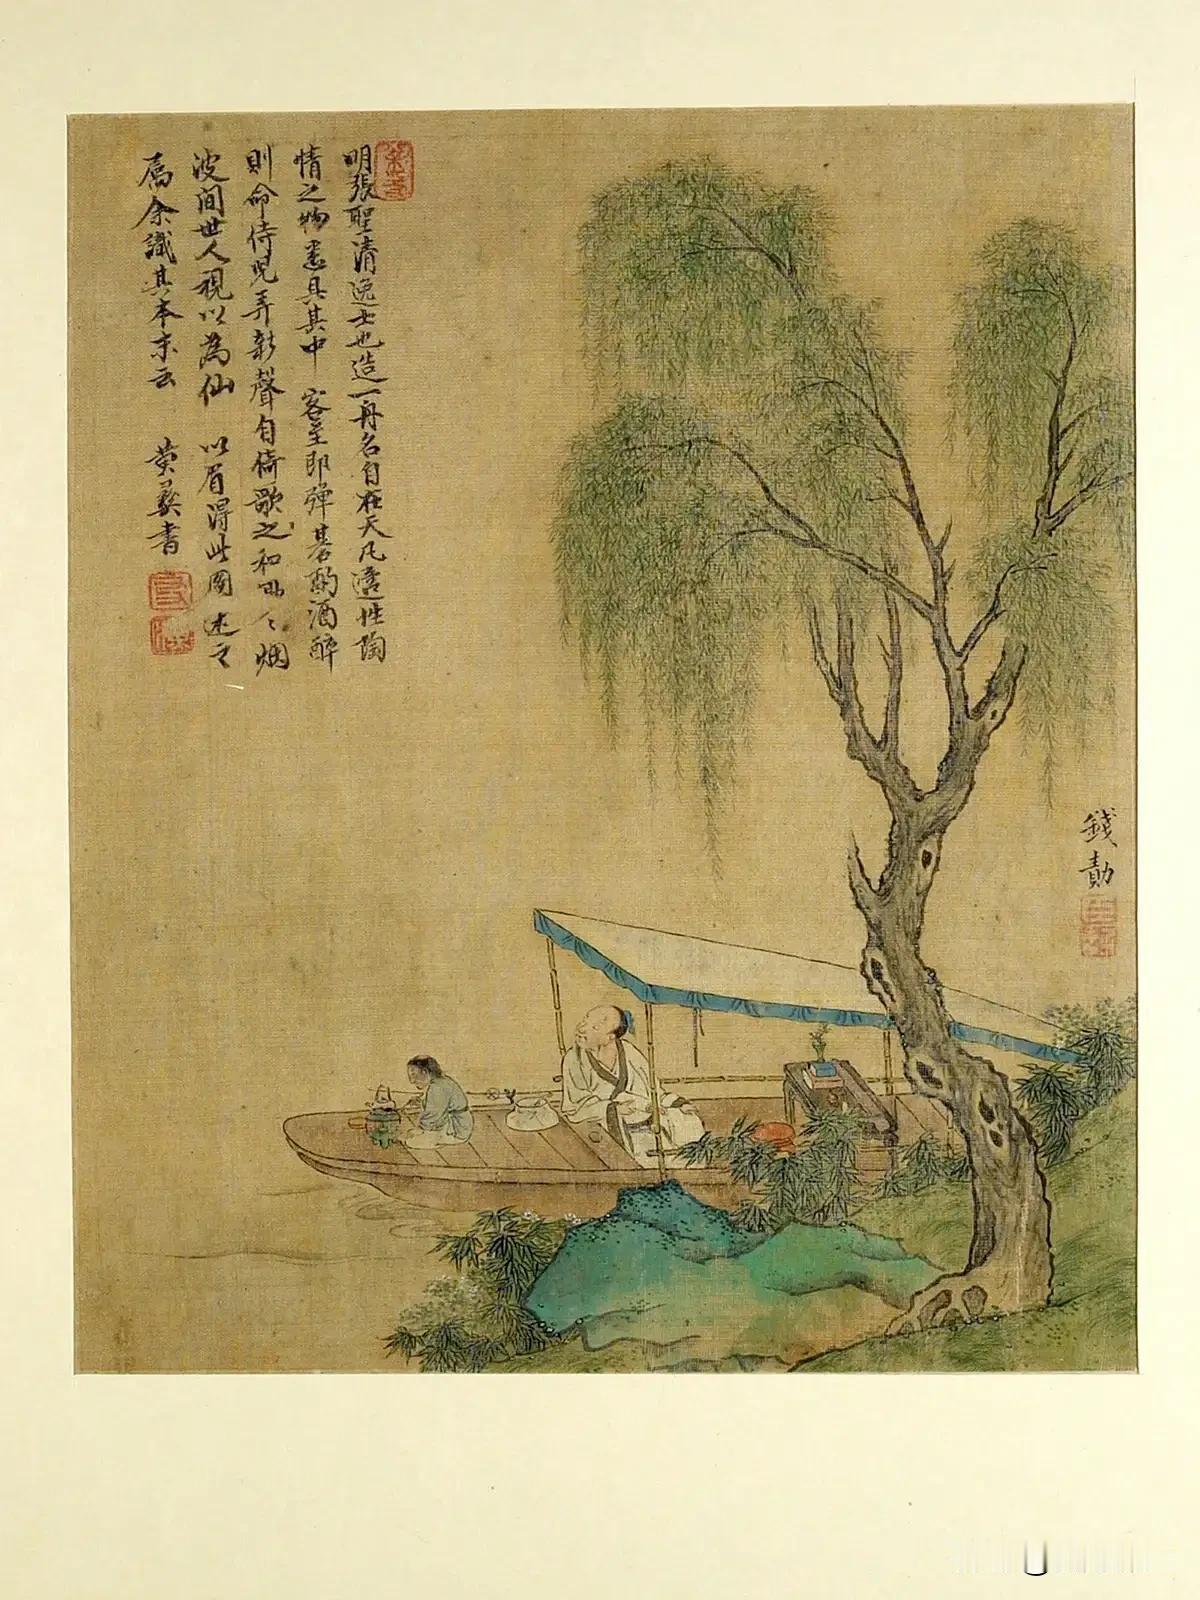 明張聖清逸士也造一舟名自在天凡適性陶
情之物悉具其中客至即彈棊酌酒醉
則命侍兒弄新聲自倚歌之和 烟
波間世人視以為仙以眉得此圖述之
屬余識其本末云 黄 書
錢